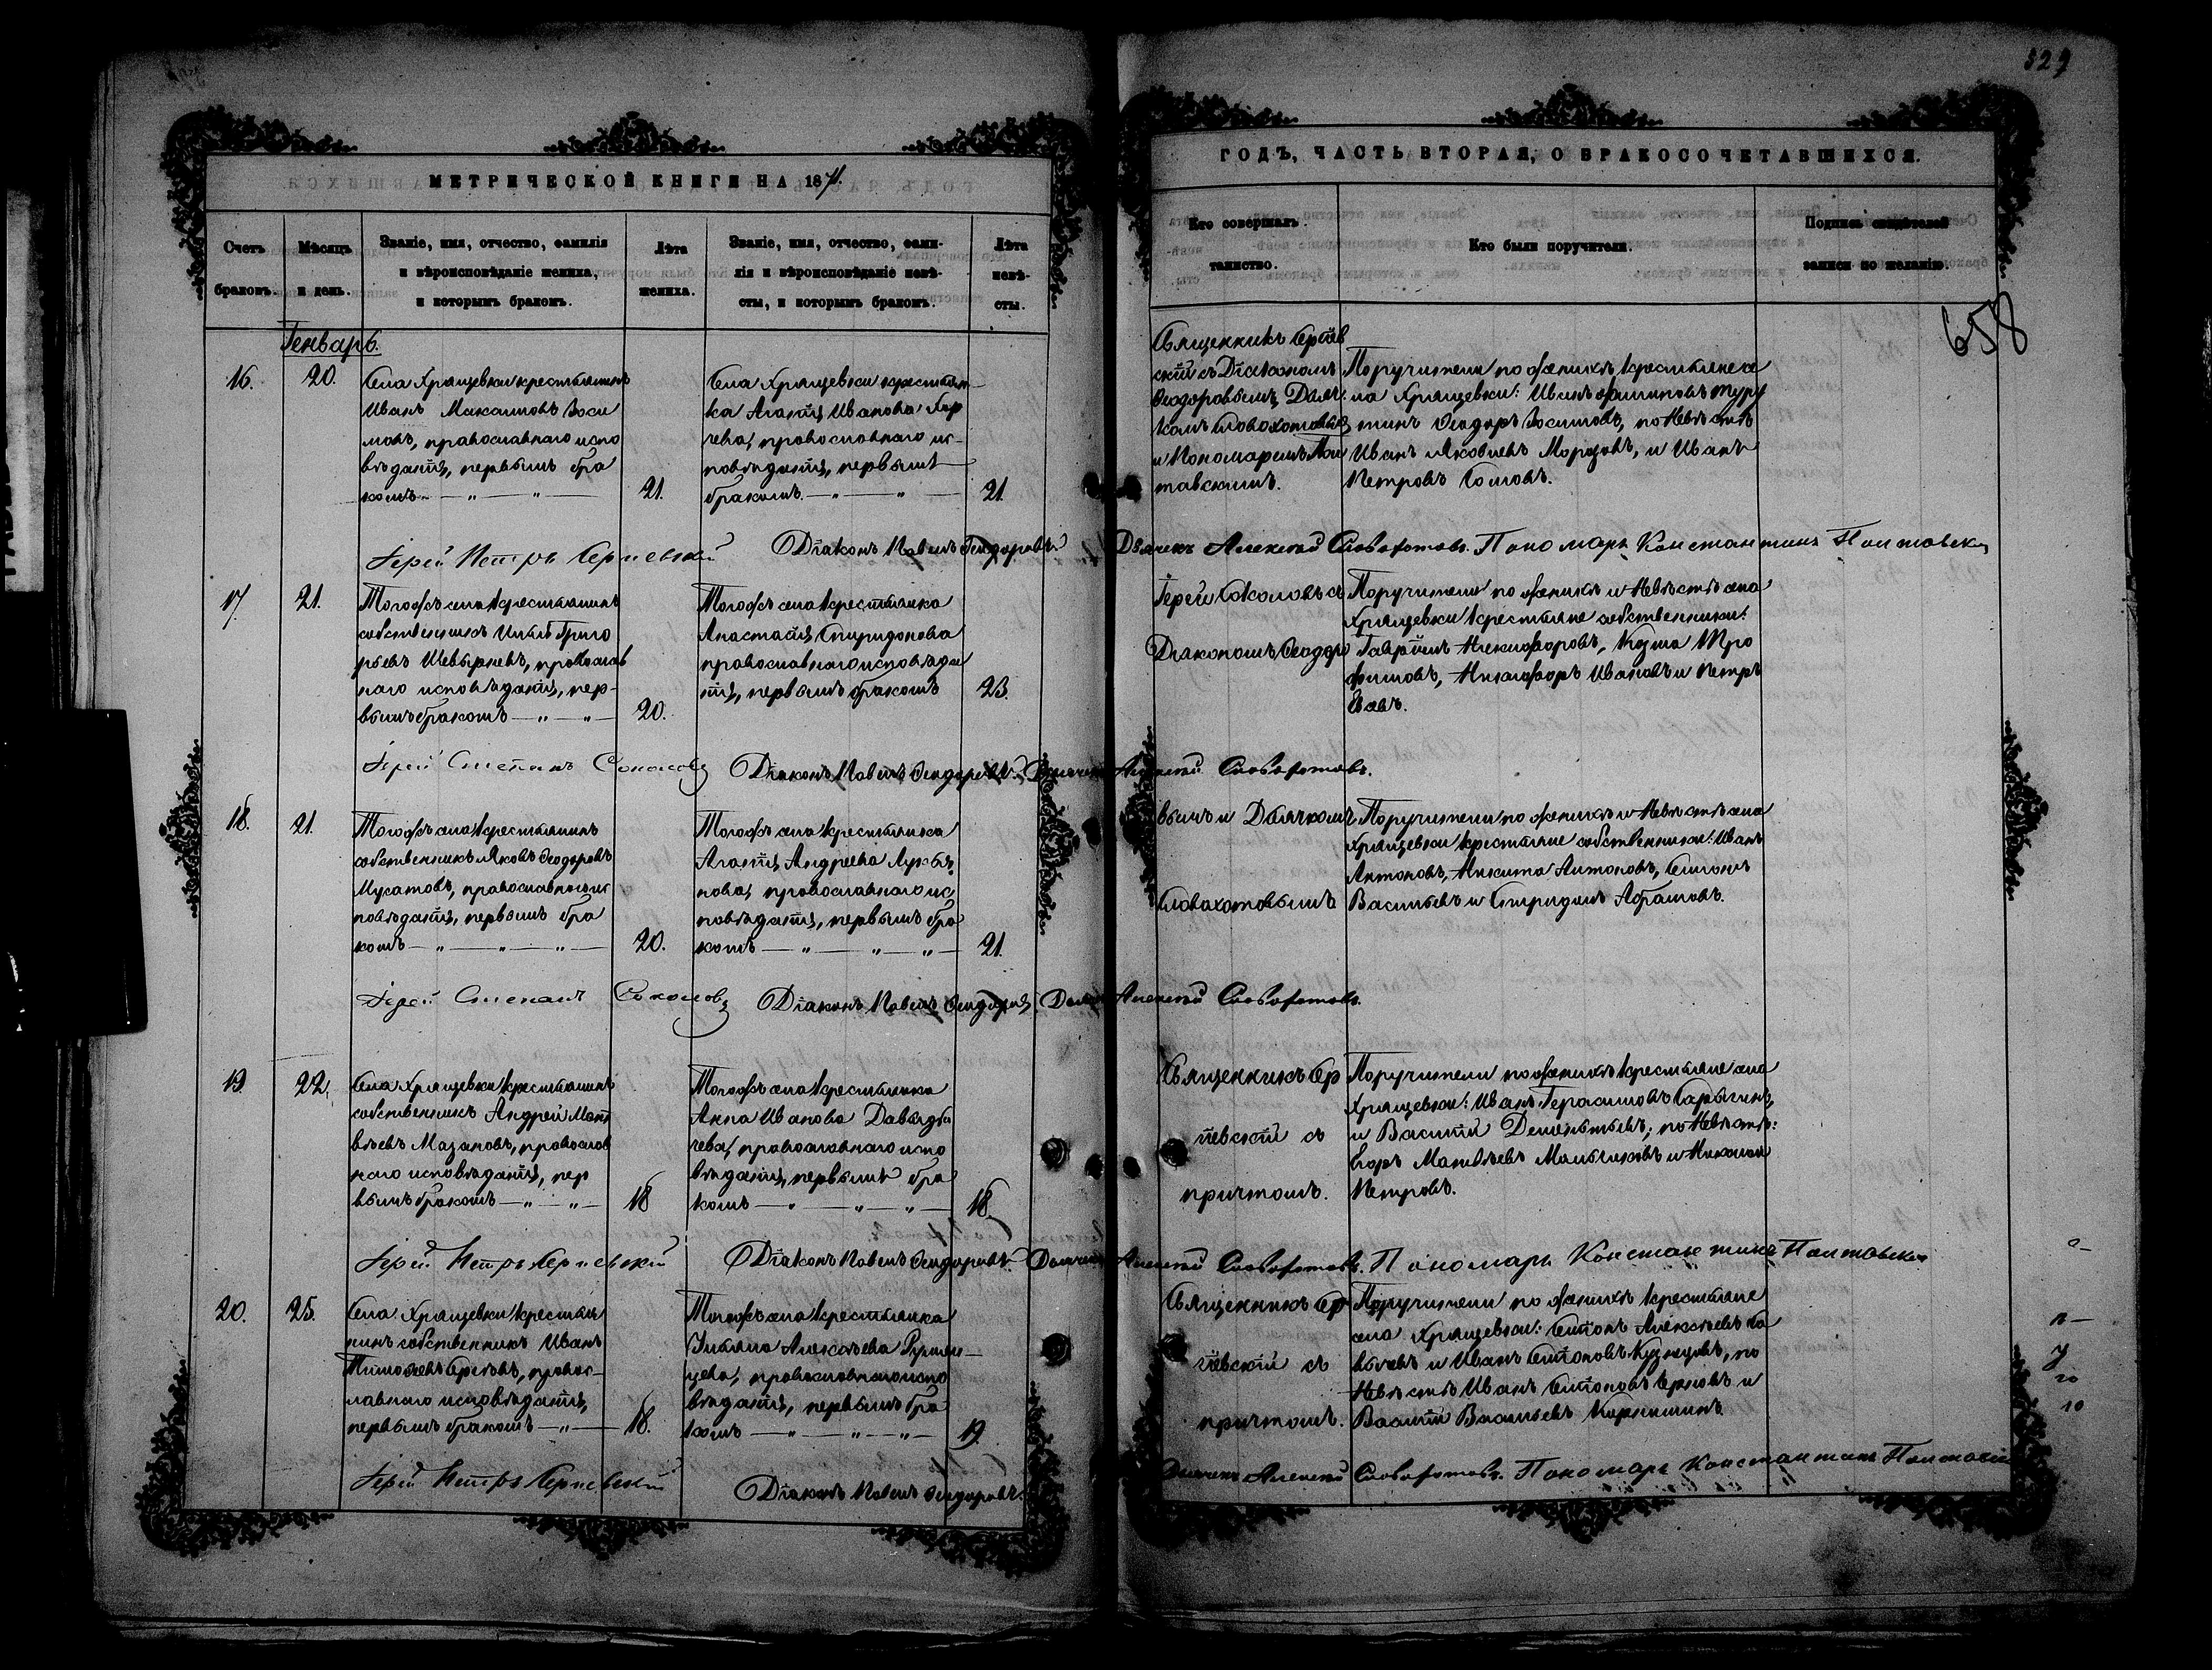 329
МЕТРИЧЕСКОЙ КНИГИ НА 1871.
ГОДЪ, ЧАСТЬ ВТОРАЯ, О БРАКОСОЧЕТАВШИХСЯ.
Счетъ
браковъ.
Мѣсяцъ
и день.
Званіе, имя, отчество, фамилія
и вѣроисповѣданіе жениха,
и которымъ бракомъ.
Лѣта
жениха.
Званіе, имя, отчество, фами-
лія и вѣроисповѣданіе невѣ-
сты, и которымъ бракомъ.
Лѣта
невѣ-
сты.
Кто совершалъ
таинство.
Кто были поручители.
Подпись свидѣтелей
записи по желанію.
658
Генварь.
16.
20.
Села Хрящевки крестьянинъ
Иванъ Максимовъ Зоси
мовъ, православнаго испо
вѣданія, первымъ бра
комъ
21.
Села Хрящевки крестьян-
ка Агапія Иванова
православнаго ис-
повѣданія, первымъ
бракомъ
21
Священникъ Сергіев
скій съ Діакономъ
Ѳеодоровымъ, Дьяч
комъ Словохотовымъ
и Пономаремъ Пол
тавскимъ.
Поручители по женихѣ крестьяне се
ла Хрящевки: Иванъ Филиповъ
Ѳеодоръ Зосимовъ, по Невѣстѣ
Иванъ Яковлевъ Морозовъ, и Иванъ
Петровъ Сомовъ.
Іерей Петръ Сергіевскій
Діаконъ Павелъ Ѳеодоровъ
Дьячекъ Алексѣй Словохотовъ. Пономарь Константинъ Полтавскій
17.
21.
Тогожъ села крестьянинъ
собственникъ Григо
рьевъ Шевыревъ, православ
наго исповѣданія, пер-
вымъ бракомъ
20.
Тогожъ села крестьянка
Анастасія Спиридонова
православнаго исповѣда
нія, первымъ бракомъ
23.
Іерей Соколовъ съ
Діакономъ Ѳеодоро
Поручители по женихѣ и Невѣстѣ села
Хрящевки крестьяне собственники:
Гавріилъ Никифоровъ, Козма Тро
фимовъ, Никифоръ Ивановъ и Петръ
Іерей Стефанъ Соколовъ
Діаконъ Павелъ Ѳеодоровъ. Дьячекъ Алексѣй Словохотовъ.
18.
21.
Тогожъ села крестьянинъ
собственникъ Яковъ Ѳеодоровъ
Мусатовъ, православнаго ис
повѣданія, первымъ бра
комъ
20.
Тогожъ села крестьянка
Агапія Андреева Лукья
нова, православнаго ис
повѣданія, первымъ бра
комъ
21.
вымъ и Дьячкомъ
Словохотовымъ
Поручители по женихѣ и Невѣстѣ села
Хрящевки крестьяне собственники: Иванъ
Антоновъ, Никита Антоновъ, Симонъ
Васильевъ и Спиридонъ Абрамовъ.
Іерей Стефанъ Соколовъ
Діаконъ Павелъ Ѳеодоровъ. Дьячекъ Алексѣй Словохотовъ.
19.
22.
Села Хрящевки крестьянинъ
собственникъ Андрей Мат
вѣевъ Мазановъ, православ
наго исповѣданія, пер
вымъ бракомъ
18
Тогожъ села крестьянка
Анна Иванова Давыды
чева, православнаго испо
вѣданія, первымъ бра
комъ
18.
Священникъ Сер
гіевскій съ
причтомъ.
Поручители по женихѣ крестьяне села
Хрящевки: Иванъ Герасимовъ Сарычинъ,
и Василій Дементьевъ; по Невѣстѣ:
Егоръ Матвѣевъ Мальчиковъ и Николай
Петровъ.
Іерей Петръ Сергіевскій
Діаконъ Павелъ Ѳеодоровъ. Дьячекъ Алексѣй Словохотовъ. Пономарь Константинъ Полтавскій
20.
25.
Села Хрящевки крестья
нинъ собственникъ Иванъ
Тимофеевъ православ-
наго исповѣданія,
первымъ бракомъ
18.
Тогожъ села крестьянка
Ульяна Алексѣева Румян-
цева, православнаго испо
вѣданія, первымъ бра
комъ
19.
Священникъ Сер
гіевскій съ
причтомъ.
Поручители по женихѣ крестьяне
села Хрящевки: Антонъ Алексѣевъ
и Иванъ Кузнецовъ, по
Невѣстѣ Иванъ и
Василій Васильевъ
Іерей Петръ Сергіевскій
Діаконъ Павелъ Ѳеодоровъ.
Дьячекъ Алексѣй Словохотовъ. Пономарь Константинъ Полтавскій